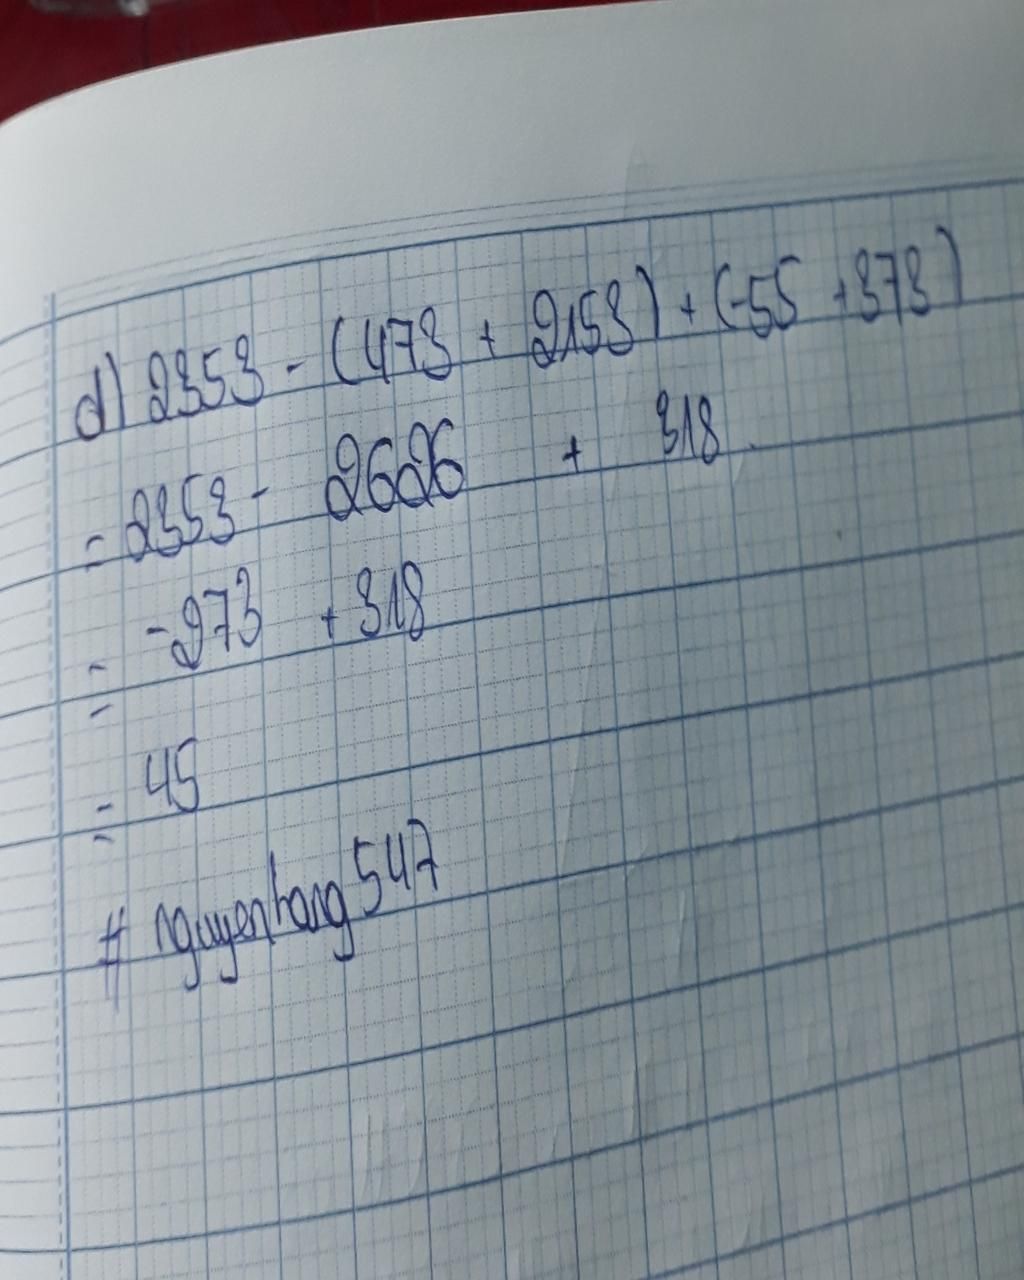 d) 2353 - (473 + 2153) + (-55 + 373)
= 2353 - 2626 + 318
= -273 + 318
= 45
# nguyenhang547